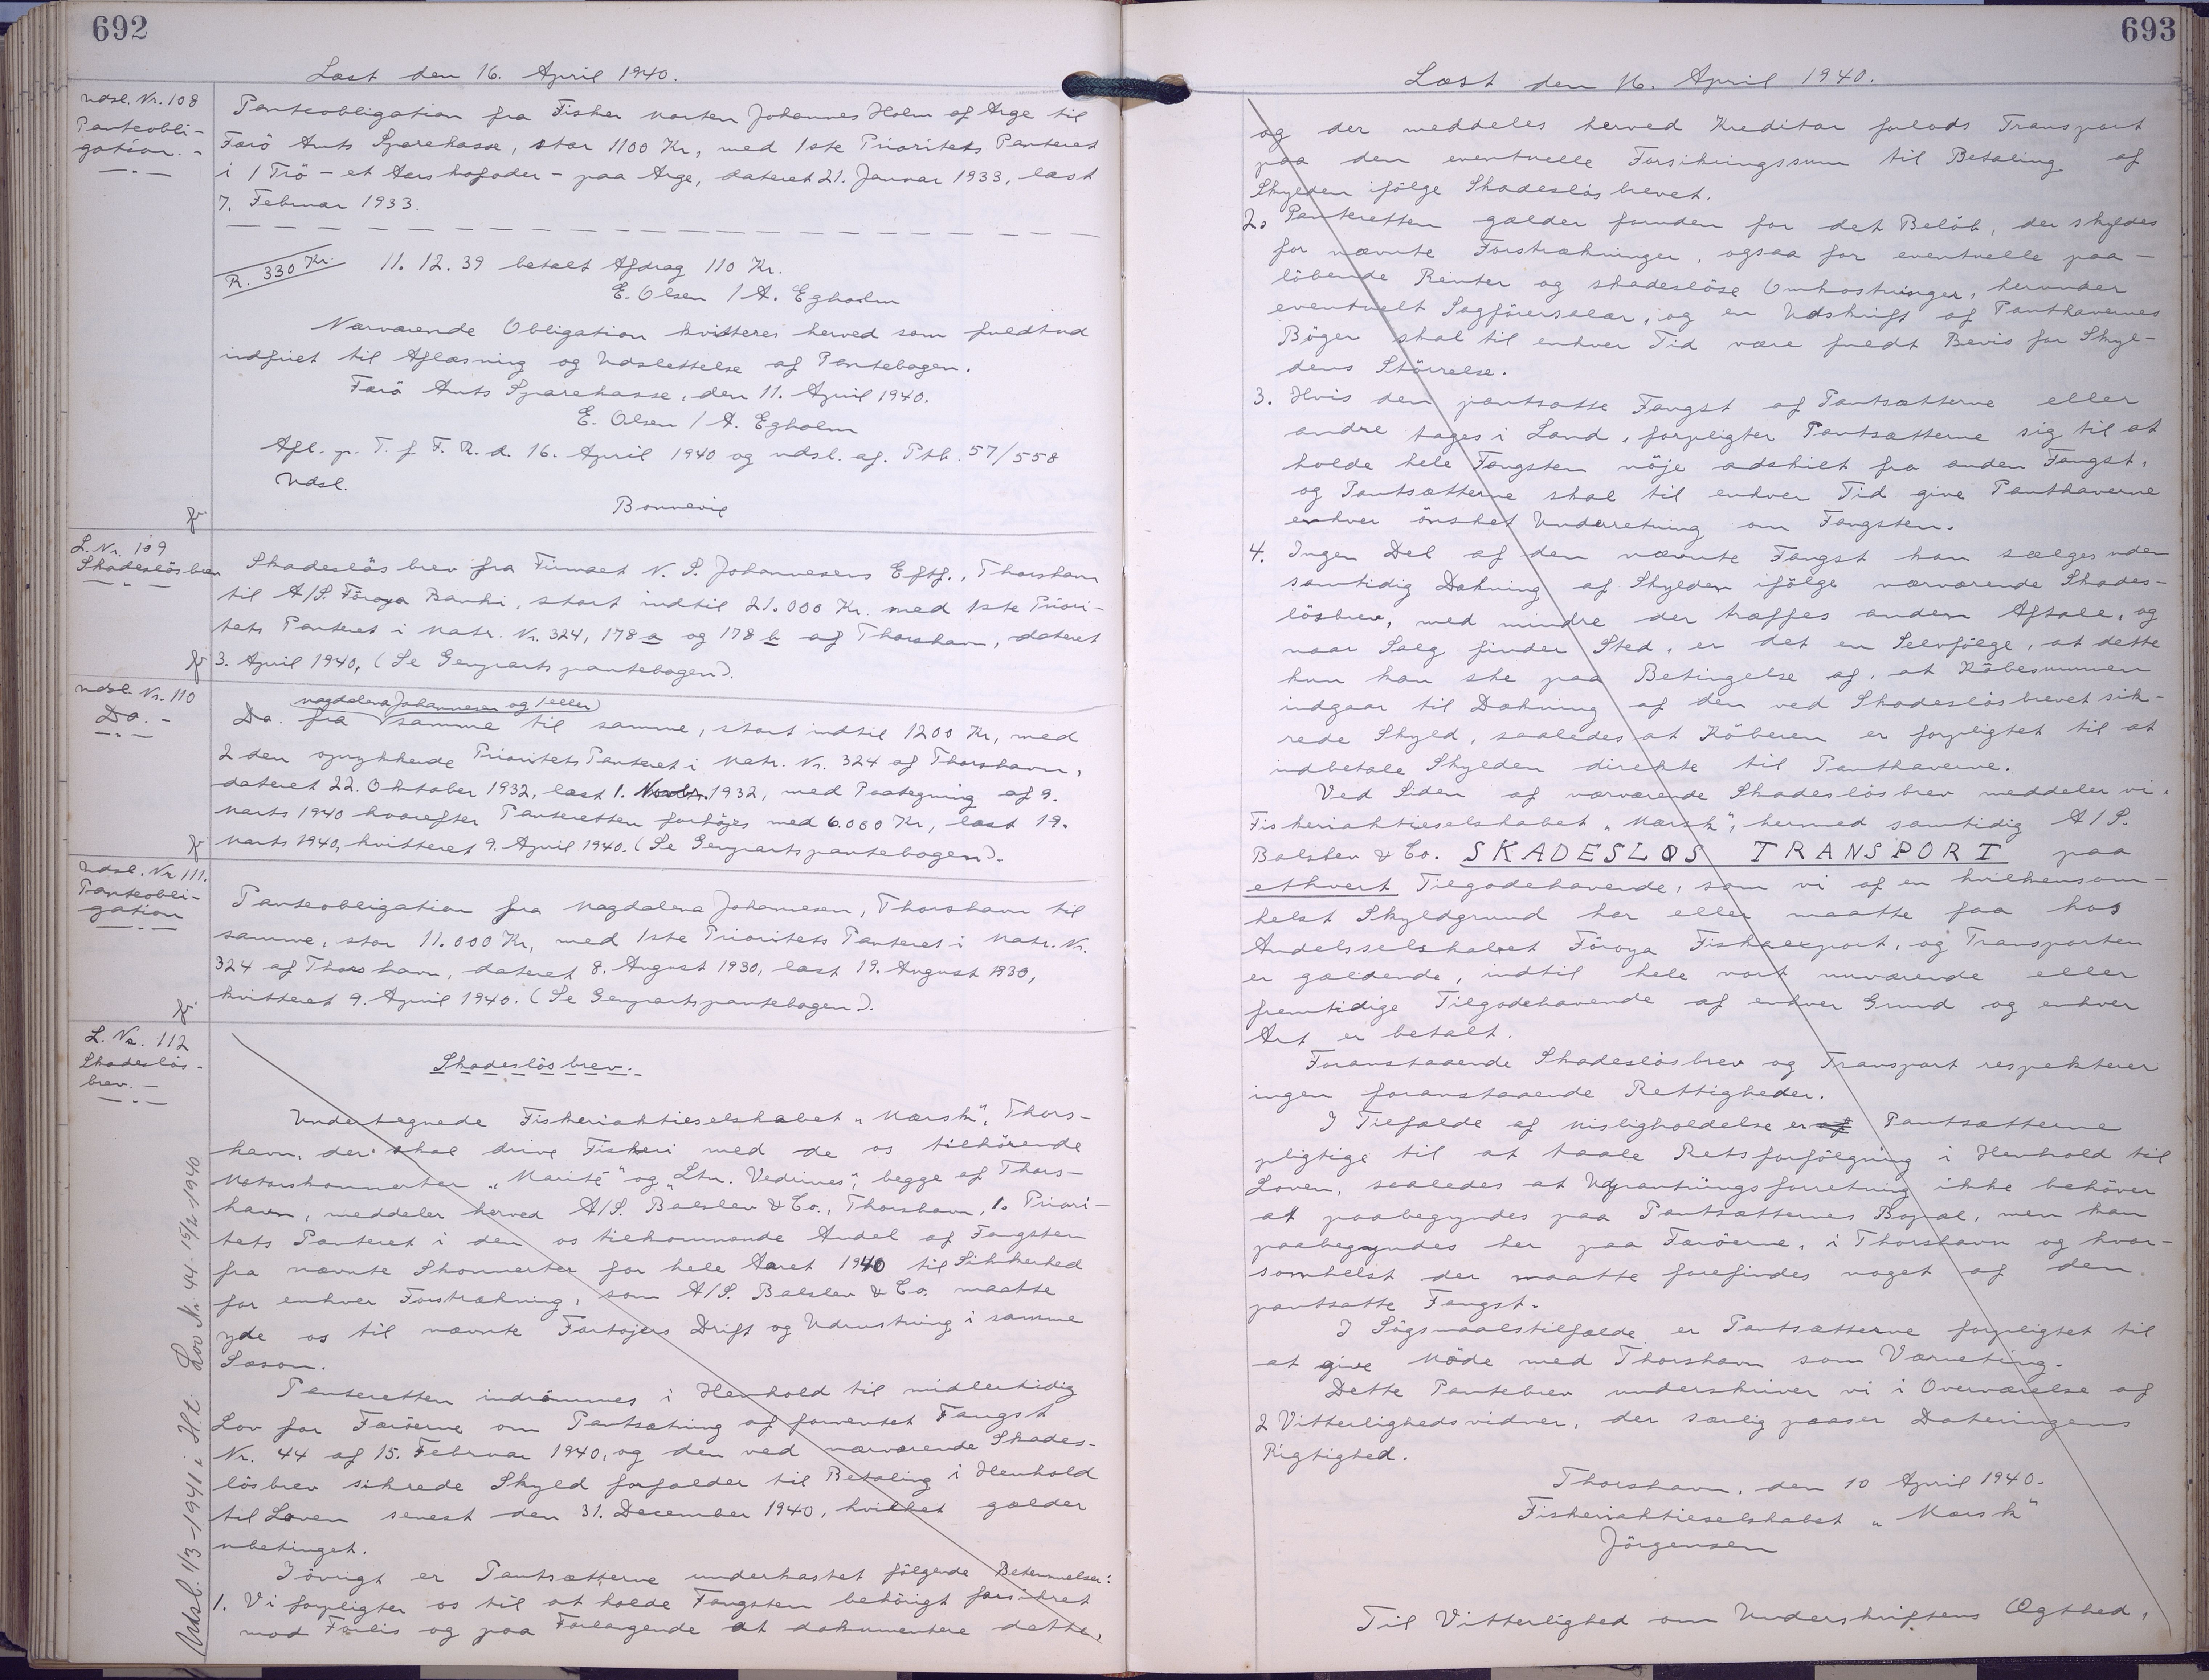 692
Læst den 16. April 1940.
Udsl. Nr. 108
Panteobli-
gation. -
Panteobligation fra Fisker Morten Johannes Holm af Arge til
Færö Amts Sparekasse, stor 1100 Kr, med 1ste Prioritets Panteret
i 1 Trö - et Aarskofoder - paa Arge, dateret 21. Januar 1933, læst
7. Februar 1933.
R. 330 Kr.
11. 12. 39 betalt Afdrag 110 Kr.
E. Olsen / A. Egholm
Nærværende Obligation kvitteres herved som fuldtud
indfriet til Aflæsning og Udslettelse af Pantebogen.
Færö Amts Sparekasse, den 11. April 1940.
E. Olsen / A. Egholm
Afl. p. T. f F. R. d. 16. April 1940 og udsl. af. Ptb. 57/558
Udsl.
Bonnevie
L. Nr. 109
Skadeslösbrev
Skadeslösbrev fra Firmaet N. S. Johannesens Eftf., Thorshavn
til A/S. Föroya Banki, stort indtil 21.000 Kr. med 1ste Priori-
tets Panteret i Matr. Nr. 324, 178 a og 178 b af Thorshavn, dateret
3. April 1940, (Se Genpartspantebogen).
Udsl. Nr. 110
Do. -
Magdalena Johannesen og / eller
Do. fra samme til samme, stort indtil 1200 Kr, med
2 den oprykkende Prioritets Panteret i Matr. Nr. 324 af Thorshavn,
dateret 22. Oktober 1932, læst 1. Novbr. 1932, med Paategning af 9.
Marts 1940 hvorefter Panteretten forhöjes med 6.000 Kr, læst 19.
Marts 1940, kvitteret 9. April 1940. (Se Genpartspantebogen).
Udsl. Nr. 111.
Panteobli-
gation
Panteobligation fra Magdalena Johannesen, Thorshavn til
samme, stor 11.000 Kr, med 1ste Prioritets Panteret i Matr. Nr.
324 af Thorshavn, dateret 8. August 1930, læst 19. August 1930,
kvitteret 9. April 1940. (Se Genpartspantebogen).
L. Nr. 112
Skadeslös-
brev. -
Udsl. 1/3-1941 i H.t. Lov Nr. 44 - 15/2-1940
Skadeslösbrev.
Undertegnede Fiskeriaktieselskabet "Marsk", Thors-
havn, der skal drive Fiskeri med de os tilhörende
Motorskonnerter "Marité" og "Ltn. Vedrines", begge af Thors-
havn, meddeler herved A/S. Balslev & Co., Thorshavn, 1. Priori-
tets Panteret i den os tilkommende Andel af Fangsten
fra nævnte Skonnerter for hele Aaret 1940 til Sikkerhed
for enhver Forstrækning, som A/S. Balslev & Co. maatte
yde os til nævnte Fartøjers Drift og Udrustning i samme
Sæson.
Panteretten indrömmes i Henhold til midlertidig
Lov for Færöerne om Pantsætning af forventet Fangst
Nr. 44 af 15. Februar 1940, og den ved nærværende Skades-
lösbrev sikrede Skyld forfalder til Betaling i Henhold
til Loven senest den 31. December 1940, hvilket gælder
ubetinget.
Iövrigt er Pantsætterne underkastet fölgende Betemmelser:
1. Vi forpligter os til at holde Fangsten behörigt forsikret
mod Forlis og paa Forlangende at dokumentere dette,
693
Læst den 16. April 1940.
og der meddeles herved Kreditor forlods Transport
paa den eventuelle Forsikringssum til Betaling af
Skylden ifölge Skadeslösbrevet.
2. Panteretten gælder foruden for det Belöb, der skyldes
for nævnte Forstrækninger, ogsaa for eventuelle paa-
löbende Renter og skadeslöse Omkostninger, herunder
eventuelt Sagförersalær, og en Udskrift af Panthavernes
Böger skal til enhver Tid være fuldt Bevis for Skyl-
dens Störrelse.
3. Hvis den pantsatte Fangst af Pantsætterne eller
andre tages i Land, forpligter Pantsætterne sig til at
holde hele Fangsten nöje adskilt fra anden Fangst,
og Pantsætterne skal til enhver Tid give Panthaverne
enhver önsket Underretning om Fangsten.
4. Ingen Del af den nævnte Fangst kan sælges uden
samtidig Dækning af Skylden ifölge nærværende Skades-
lösbrev, med mindre der træffes anden Aftale, og
naar Salg finder Sted, er det en Selvfölge, at dette
kun kan ske paa Betingelse af, at Köbesummen
indgaar til Dækning af den ved Skadeslösbrevet sik-
rede Skyld, saaledes at Köberen er forpligtet til at
indbetale Skylden direkte til Panthaverne.
Ved Siden af nærværende Skadeslösbrev meddeler vi,
Fiskeriaktieselskabet "Marsk", hermed samtidig A/S.
Balslev & Co. SKADESLØS TRANSPORT paa
ethvert Tilgodehavende, som vi af en hvilkensom-
helst Skyldgrund har eller maatte faa hos
Andelsselskabet Föroya Fiskaexport, og Transporten
er gældende, indtil hele vort nuværende eller
fremtidige Tilgodehavende af enhver Grund og enhver
Art er betalt.
Foranstaaende Skadeslösbrev og Transport respekterer
ingen foranstaaende Rettigheder.
I Tilfælde af Misligholdelse er af Pantsætterne
pligtige til at taale Retsforfölgning i Henhold til
Loven, saaledes at Udpantningsforretning ikke behöver
at paabegyndes paa Pantsætternes Bopæl, men kan
paabegyndes her paa Færöerne, i Thorshavn og hvor-
somhelst der maatte forefindes noget af den
pantsatte Fangst.
I Sögsmaalstilfælde er Pantsætterne forpligtet til
at give Möde med Thorshavn som Værneting.
Dette Pantebrev underskriver vi i Overværelse af
2 Vitterlighedsvidner, der særlig paaser Dateringens
Rigtighed.
Thorshavn, den 10 April 1940.
Fiskeriaktieselskabet "Marsk"
Jörgensen
Til Vitterlighed om Underskriftens Ægthed,